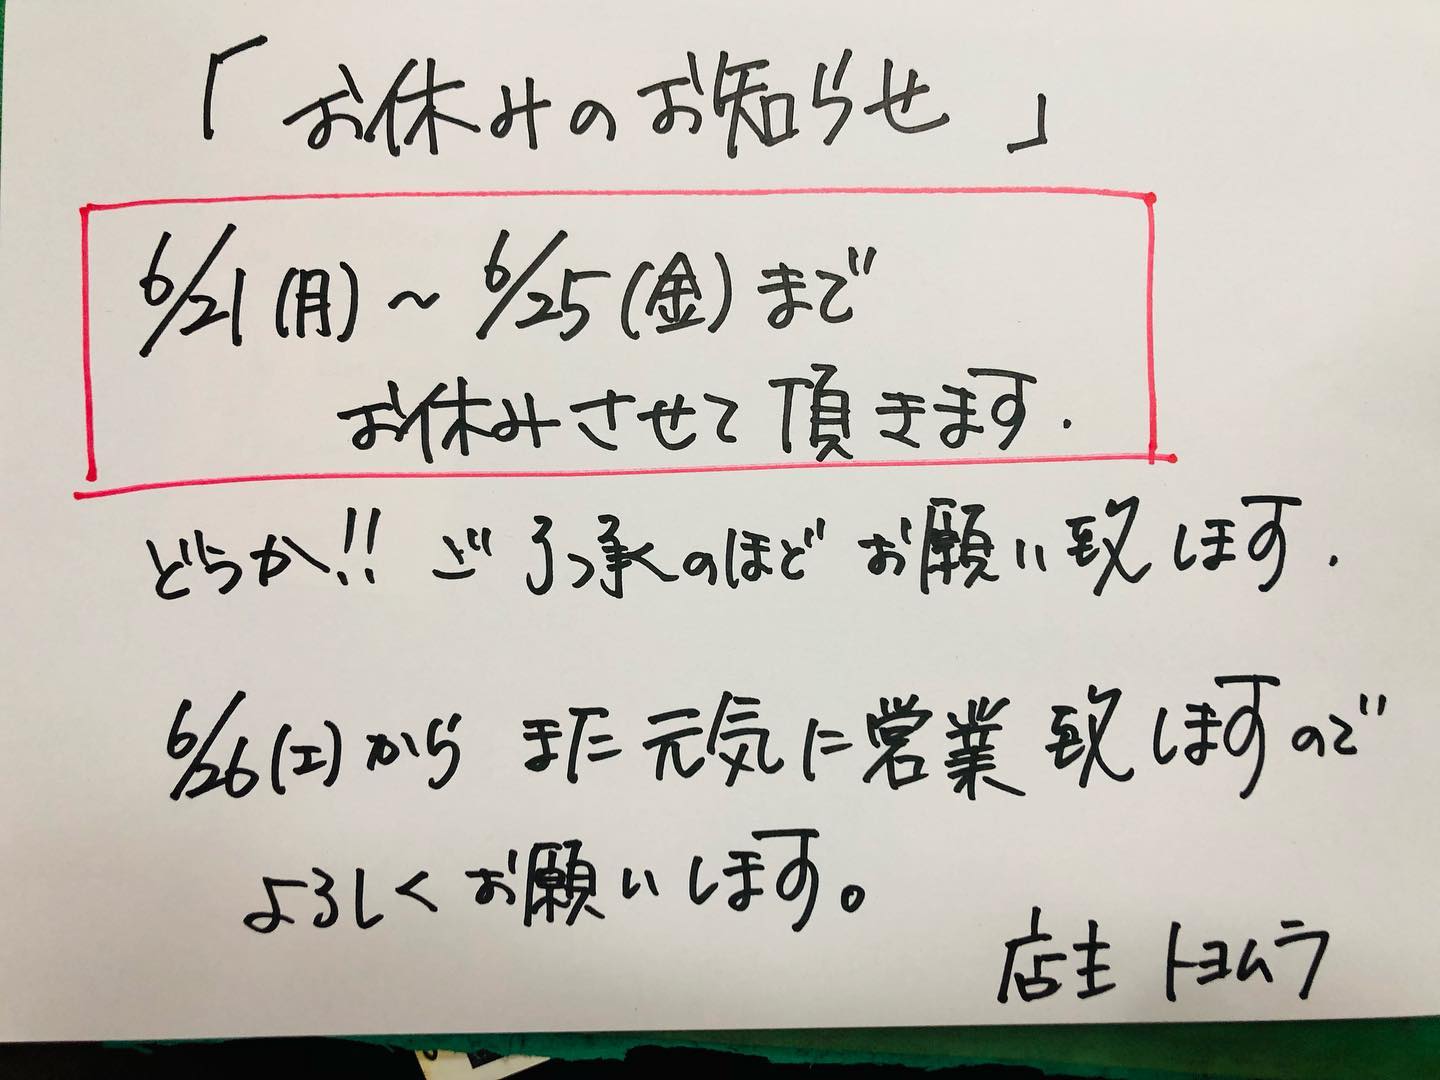 「お休みのお知らせ」
6/21(月)～6/25(金)まで
お休みさせて頂きます.
どうか!! ご了承のほどお願い致します.
6/26(土)からまた元気に営業致しますので
よろしくお願いします。
店主 トヨムラ